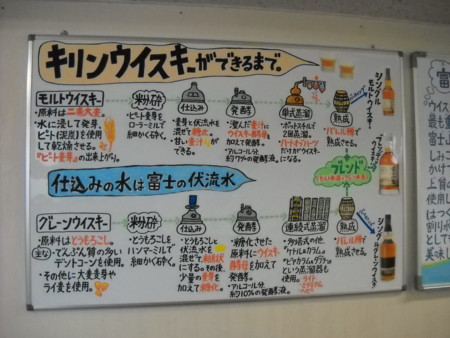 キリンウイスキーができるまで。
モルトウイスキー
・原料は二条大麦。
・水に浸して発芽。
ピート(泥炭)を使用
して乾燥させる。
『ピート麦芽』の出来上がり。
粉砕
・ピート麦芽を
ローラーミルで
細かくくだく。
仕込み
・麦芽と仕込水を
混ぜて糖化。
・甘い麦汁が
できる。
発酵
・澄んだ麦汁に
ウイスキー酵母を
加えて発酵。
・アルコール分
約7%の発酵液。
単式蒸溜
・ポットスチルで
2回蒸溜。
だけがウイスキー
になる。
熟成
・バレル樽で
熟成させる。
シングル
モルトウイスキー
仕込みの水は富士の伏流水
ブレンド
グレーンウイスキー
・原料はとうもろこし。
(主な)でんぷん質の多い
デントコーンを使用。
・その他に大麦麦芽や
ライ麦を使用。
粉砕
・とうもろこしを
ハンマーミルで
細かくくだく。
仕込み
・とうもろこしと
伏流水を
混ぜて
にする。その後、
少量の麦芽を
加えて糖化。
発酵
・糖化させた
原料にウイスキー
酵母を加えて
発酵。
・アルコール分
約10%の発酵液。
連続式蒸溜
・多塔式の他、
という蒸溜器も
使用。
熟成
・バレル樽で
熟成する。
シングルグレーンウイスキー
富
ウイス
最も重
富士山
しみこ
かけて
上質の
使用し
はつく
割り
として
美味し